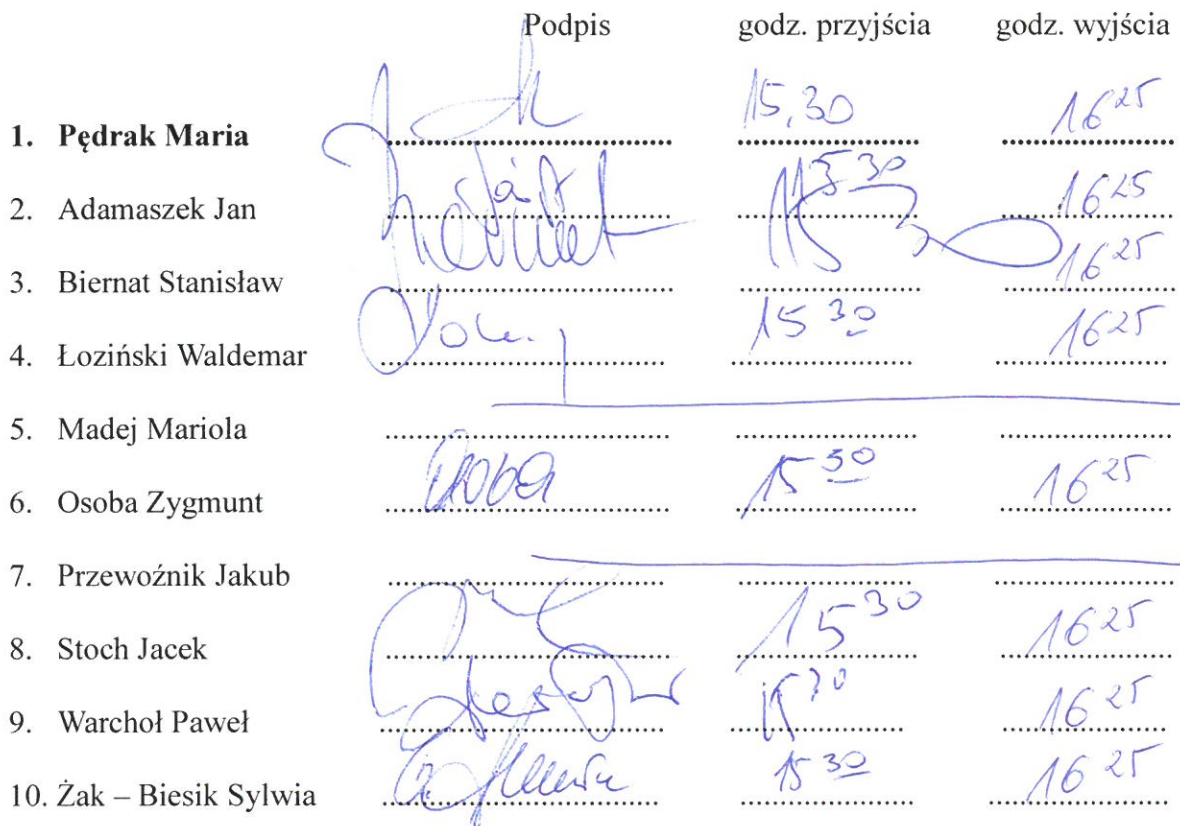 Podpis godz. przyjścia godz. wyjścia
1. Pędrak Maria ........ 15,30 ........ 16 25
2. Adamaszek Jan ........ 15 30 ........ 16 25
3. Biernat Stanisław ........ 15 3 ........ 16 25
4. Łoziński Waldemar ........ 15 30 ........ 16 25
5. Madej Mariola ........ ........ ........
6. Osoba Zygmunt ........ Osoba 15 30 ........ 16 25
7. Przewoźnik Jakub ........ ........ ........
8. Stoch Jacek ........ 15 30 ........ 16 25
9. Warchoł Paweł ........ 15 30 ........ 16 25
10. Żak – Biesik Sylwia ........ 15 30 ........ 16 25